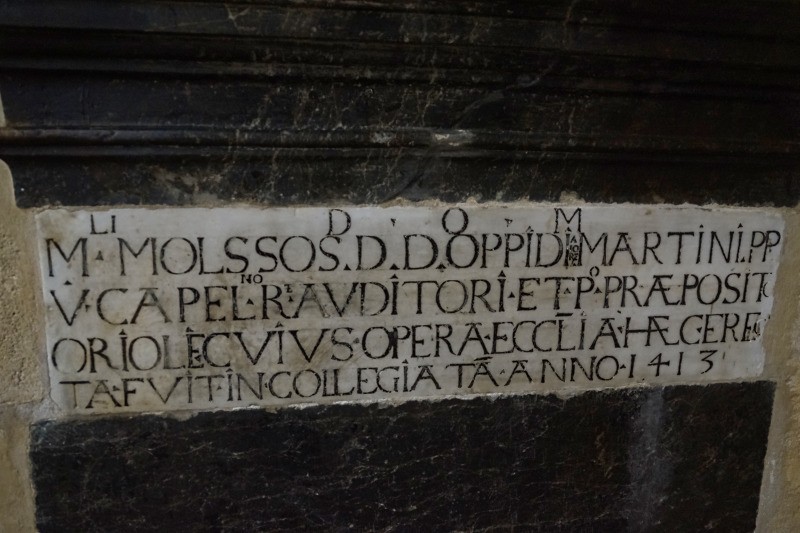 D · O · M
M^LI · MOLSSOS · D · D · OPPIDI MARTINI · PP
V · CAPEL^NO · R^I · AVDITORI · ET · P^O · PRÆPOSIT
ORIOLE CVIVS · OPERA · ECCLĪA · HÆC · ERE
TA · FVIT · IN · COLLEGIATĀ · ANNO · 1413